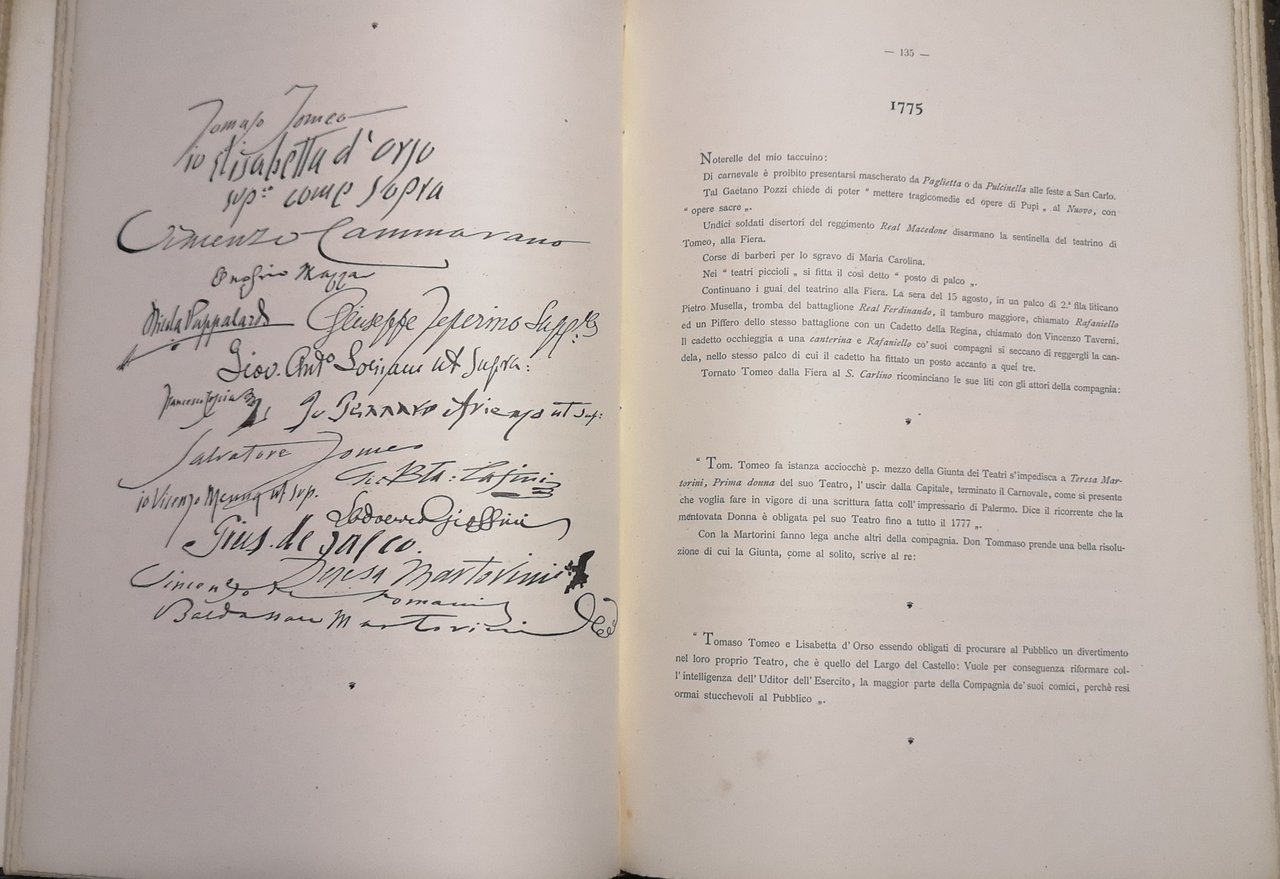 Tomaso Tomeo
io Elisabetta d'orso
sup: come sopra
Vincenzo Cammarano
Onofrio Mazza
Nicola Pappalardo
Giuseppe
Giov. Ant.° ut supra:
Francesco
Io Gennaro Arienzo ut sup:
Salvatore Tomeo
Gio Bta:
io Vicenzo Menna ut sup.
Gius. de
Teresa Martorini
Vincenzo
Baldassarre Martorini
— 135 —
1775
Noterelle del mio taccuino:
Di carnevale è proibito presentarsi mascherato da Paglietta o da Pulcinella alle feste a San Carlo.
Tal Gaetano Pozzi chiede di poter “ mettere tragicomedie ed opere di Pupi „ al Nuovo, con
“ opere sacre „.
Undici soldati disertori del reggimento Real Macedone disarmano la sentinella del teatrino di
Tomeo, alla Fiera.
Corse di barberi per lo sgravo di Maria Carolina.
Nei “ teatri piccioli „ si fitta il così detto “ posto di palco „.
Continuano i guai del teatrino alla Fiera. La sera del 15 agosto, in un palco di 2.ª fila liticano
Pietro Musella, tromba del battaglione Real Ferdinando, il tamburo maggiore, chiamato Rafaniello
ed un Piffero dello stesso battaglione con un Cadetto della Regina, chiamato don Vincenzo Taverni.
Il cadetto occhieggia a una canterina e Rafaniello co' suoi compagni si seccano di reggergli la can-
dela, nello stesso palco di cui il cadetto ha fittato un posto accanto a quei tre.
Tornato Tomeo dalla Fiera al S. Carlino ricominciano le sue liti con gli attori della compagnia:
“ Tom. Tomeo fa istanza acciocchè p. mezzo della Giunta dei Teatri s'impedisca a Teresa Mar-
torini, Prima donna del suo Teatro, l'uscir dalla Capitale, terminato il Carnovale, come si presente
che voglia fare in vigore di una scrittura fatta coll'impressario di Palermo. Dice il ricorrente che la
mentovata Donna è obligata pel suo Teatro fino a tutto il 1777 „.
Con la Martorini fanno lega anche altri della compagnia. Don Tommaso prende una bella risolu-
zione di cui la Giunta, come al solito, scrive al re:
“ Tomaso Tomeo e Lisabetta d'Orso essendo obligati di procurare al Pubblico un divertimento
nel loro proprio Teatro, che è quello del Largo del Castello: Vuole per conseguenza riformare col-
l'intelligenza dell'Uditor dell'Esercito, la maggior parte della Compagnia de' suoi comici, perchè resi
ormai stucchevoli al Pubblico „.